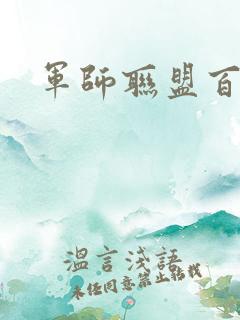 軍師聯盟百
溫言淺語
未經同意禁止轉載